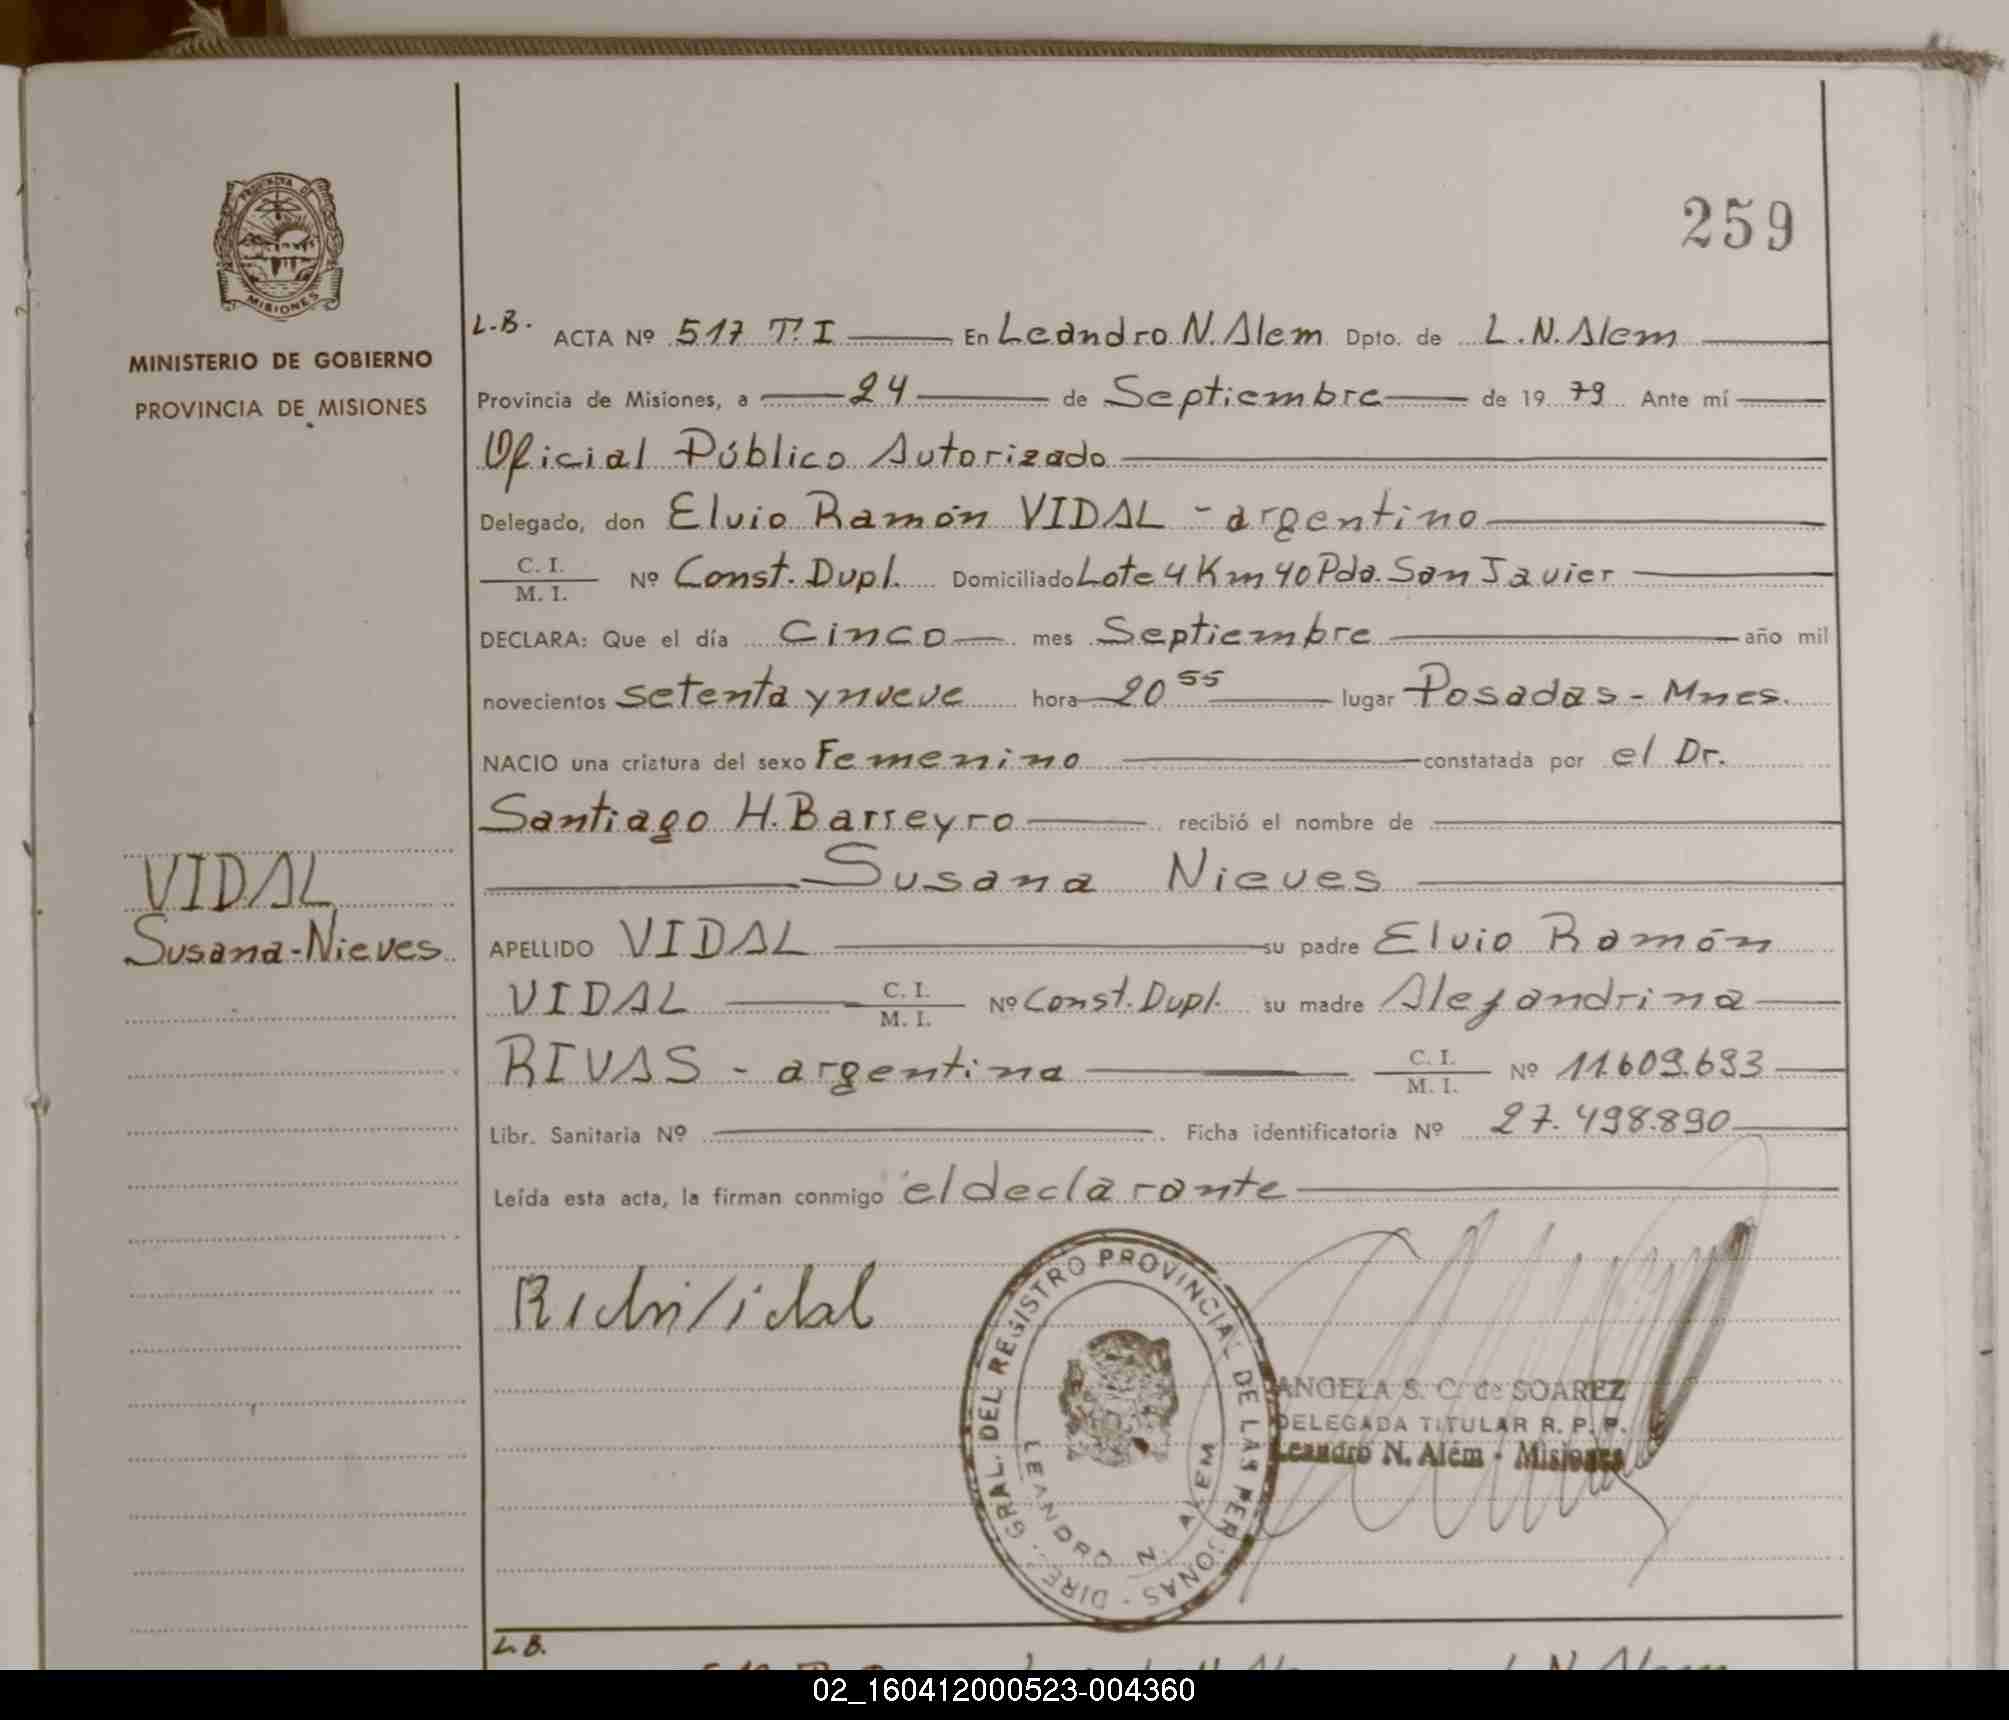 259
PROVINCIA DE
MISIONES
MINISTERIO DE GOBIERNO
PROVINCIA DE MISIONES
L.B. ACTA Nº 517 T.I En Leandro N. Alem Dpto. de L.N. Alem
Provincia de Misiones, a 24 de Septiembre de 19 79 Ante mí
Oficial Público Autorizado
Delegado, don Elvio Ramón VIDAL - argentino
C. I.
M. I. Nº Const. Dupl. Domiciliado Lote 4 Km 40 Pda. San Javier
DECLARA: Que el día Cinco mes Septiembre año mil
novecientos setenta y nueve hora 20 55 lugar Posadas - Mnes.
NACIO una criatura del sexo Femenino constatada por el Dr.
Santiago H. Barreyro recibió el nombre de
Susana Nieves
VIDAL
Susana-Nieves
APELLIDO VIDAL su padre Elvio Ramón
VIDAL C. I.
M. I. Nº Const. Dupl. su madre Alejandrina
RIVAS - argentina C. I.
M. I. Nº 11.609.693
Libr. Sanitaria Nº Ficha identificatoria Nº 27.498.890
Leída esta acta, la firman conmigo el declarante
DIRE. GRAL. DEL REGISTRO PROVINCIAL DE LAS PERSONAS -
LEANDRO N. ALEM
ANGELA S. C. de SOAREZ
DELEGADA TITULAR R. P. P.
Leandro N. Além - Misiones
L.B.
02_160412000523-004360